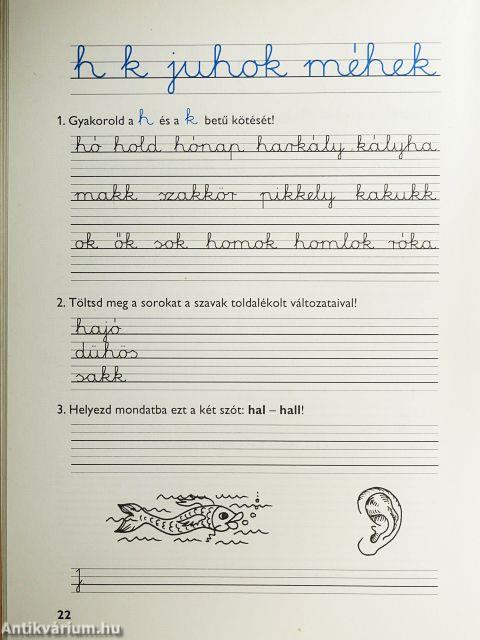 h k juhok méhek
1. Gyakorold a h és a k betű kötését!
hó hold hónap harkály kályha
makk szakkör pikkely kakukk
ok ők sok homok homlok róka
2. Töltsd meg a sorokat a szavak toldalékolt változataival!
hajó
dühös
sakk
3. Helyezd mondatba ezt a két szót: hal – hall!
j
22
Antikvárium.hu